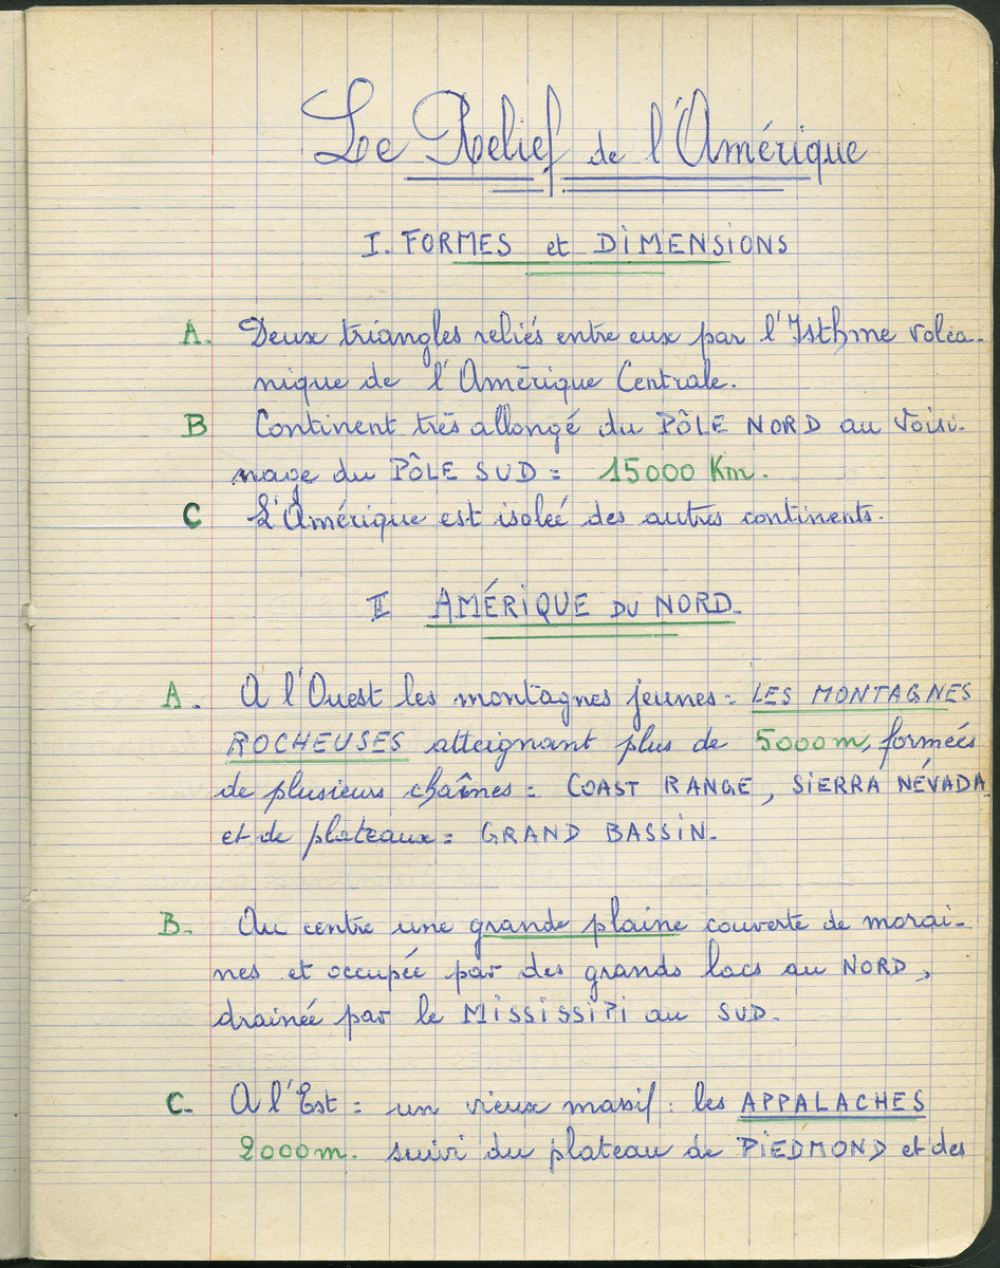 Le Relief de l'Amérique
I. FORMES et DIMENSIONS
A. Deux triangles reliés entre eux par l'Isthme volca-
nique de l'Amérique Centrale.
B Continent très allongé du PÔLE NORD au voisi-
nage du PÔLE SUD = 15000 Km.
C L'Amérique est isolée des autres continents.
II AMÉRIQUE DU NORD.
A. A l'Ouest les montagnes jeunes = LES MONTAGNES
ROCHEUSES atteignant plus de 5000m, formées
de plusieurs chaînes = COAST RANGE, SIERRA NÉVADA
et de plateaux = GRAND BASSIN.
B. Au centre une grande plaine couverte de morai-
nes et occupée par des grands lacs au NORD,
drainée par le MISSISSIPI au SUD.
C. A l'Est = un vieux massif : les APPALACHES
2000m. suivi du plateau de PIEDMOND et des